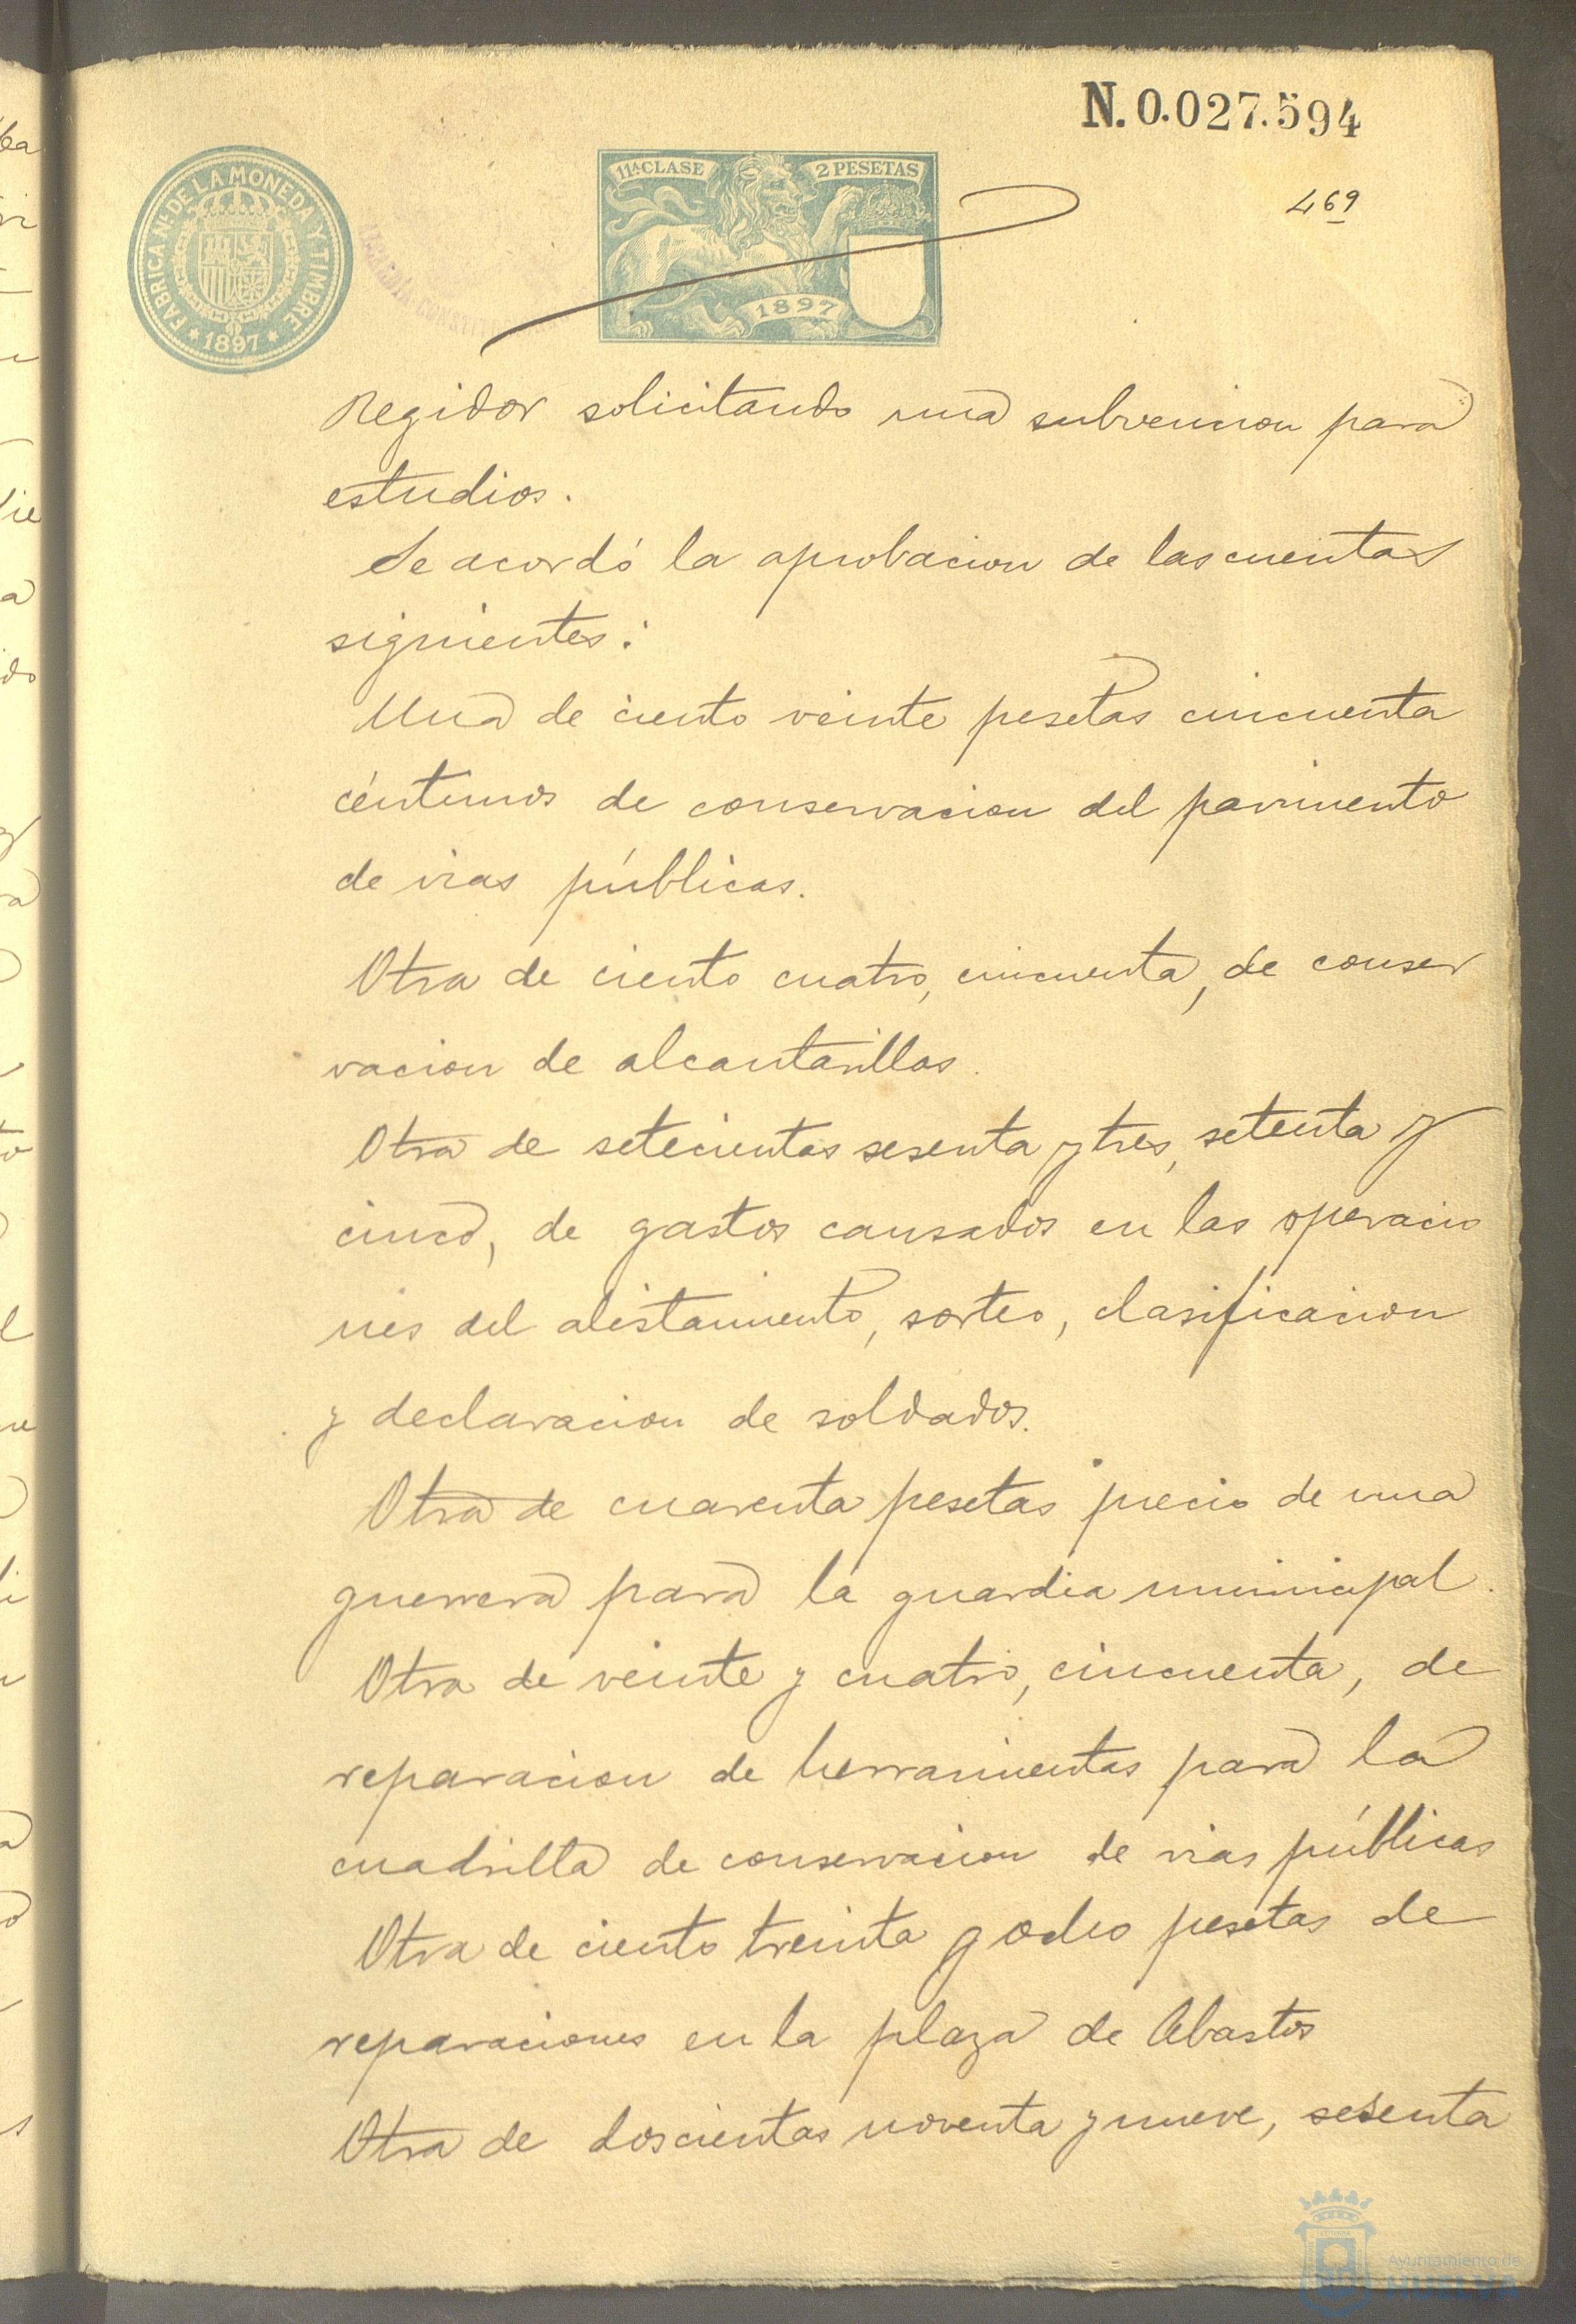 N.0.027.594
469
FABRICA Nal DE LA MONEDA Y TIMBRE
* 1897 *
11ª CLASE
2 PESETAS
1897
Regidor solicitando una subvencion para
estudios.
Se acordó la aprobacion de las cuentas
siguientes:
Una de ciento veinte pesetas cincuenta
céntimos de conservacion del pavimento
de vias públicas.
Otra de ciento cuatro, cincuenta, de conser
vacion de alcantarillas.
Otra de setecientas sesenta y tres, setenta y
cinco, de gastos causados en las operacio
nes del alistamiento, sorteo, clasificacion
y declaracion de soldados.
Otra de cuarenta pesetas precio de una
guerrera para la guardia municipal.
Otra de veinte y cuatro, cincuenta, de
reparacion de herramientas para la
cuadrilla de conservacion de vias públicas
Otra de ciento treinta y ocho pesetas de
reparaciones en la plaza de Abastos
Otra de doscientas noventa y nueve, sesenta
Ayuntamiento de
HUELVA